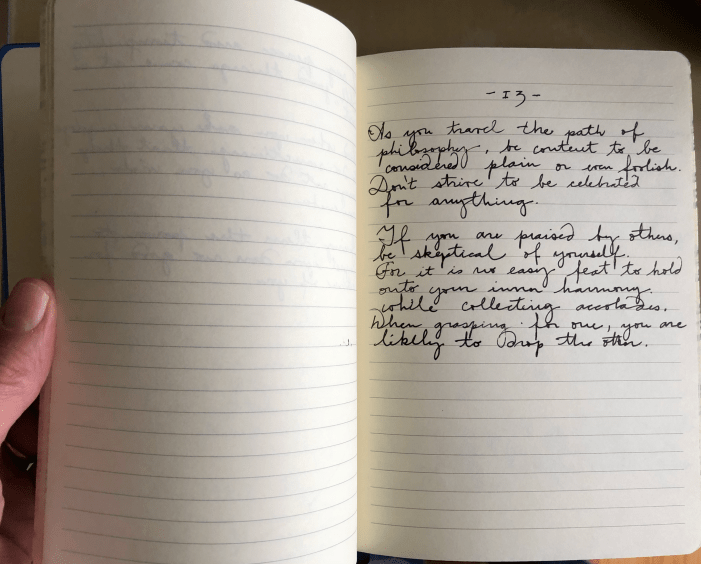 - 13 -
As you travel the path of
philosophy, be content to be
considered plain or even foolish.
Don't strive to be celebrated
for anything.
If you are praised by others,
be skeptical of yourself.
For it is no easy feat to hold
onto your inner harmony
while collecting accolades.
When grasping for one, you are
likely to drop the other.